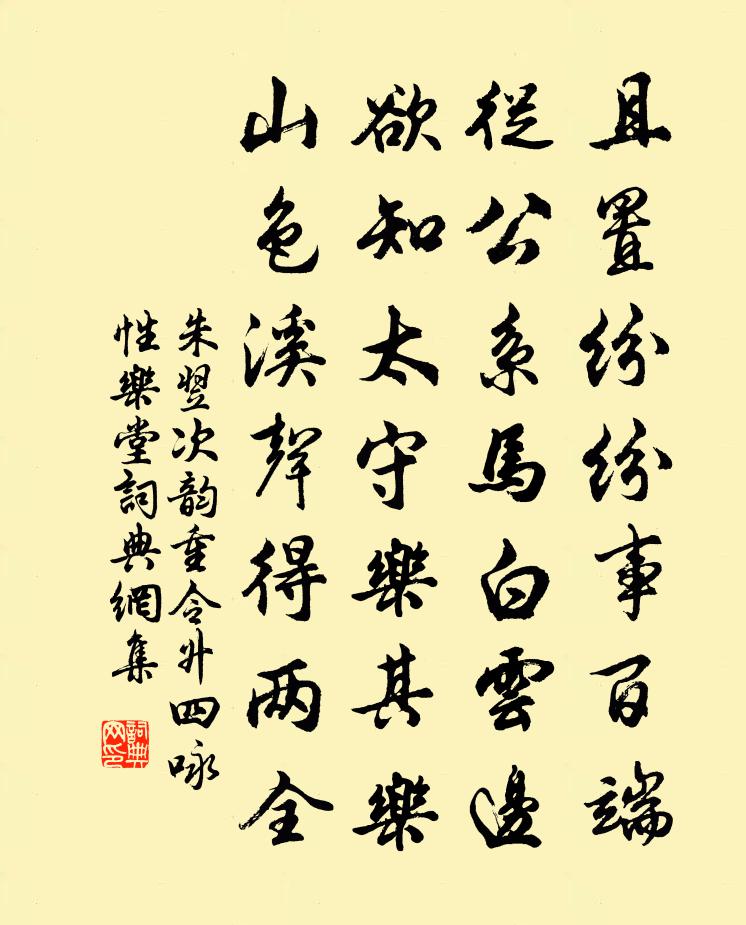 且置紛紛事百端
從公系馬白雲邊
欲知太守樂其樂
山色溪聲得两全
朱翌次韵重令升四咏
性樂堂詞典網集
詞典网印